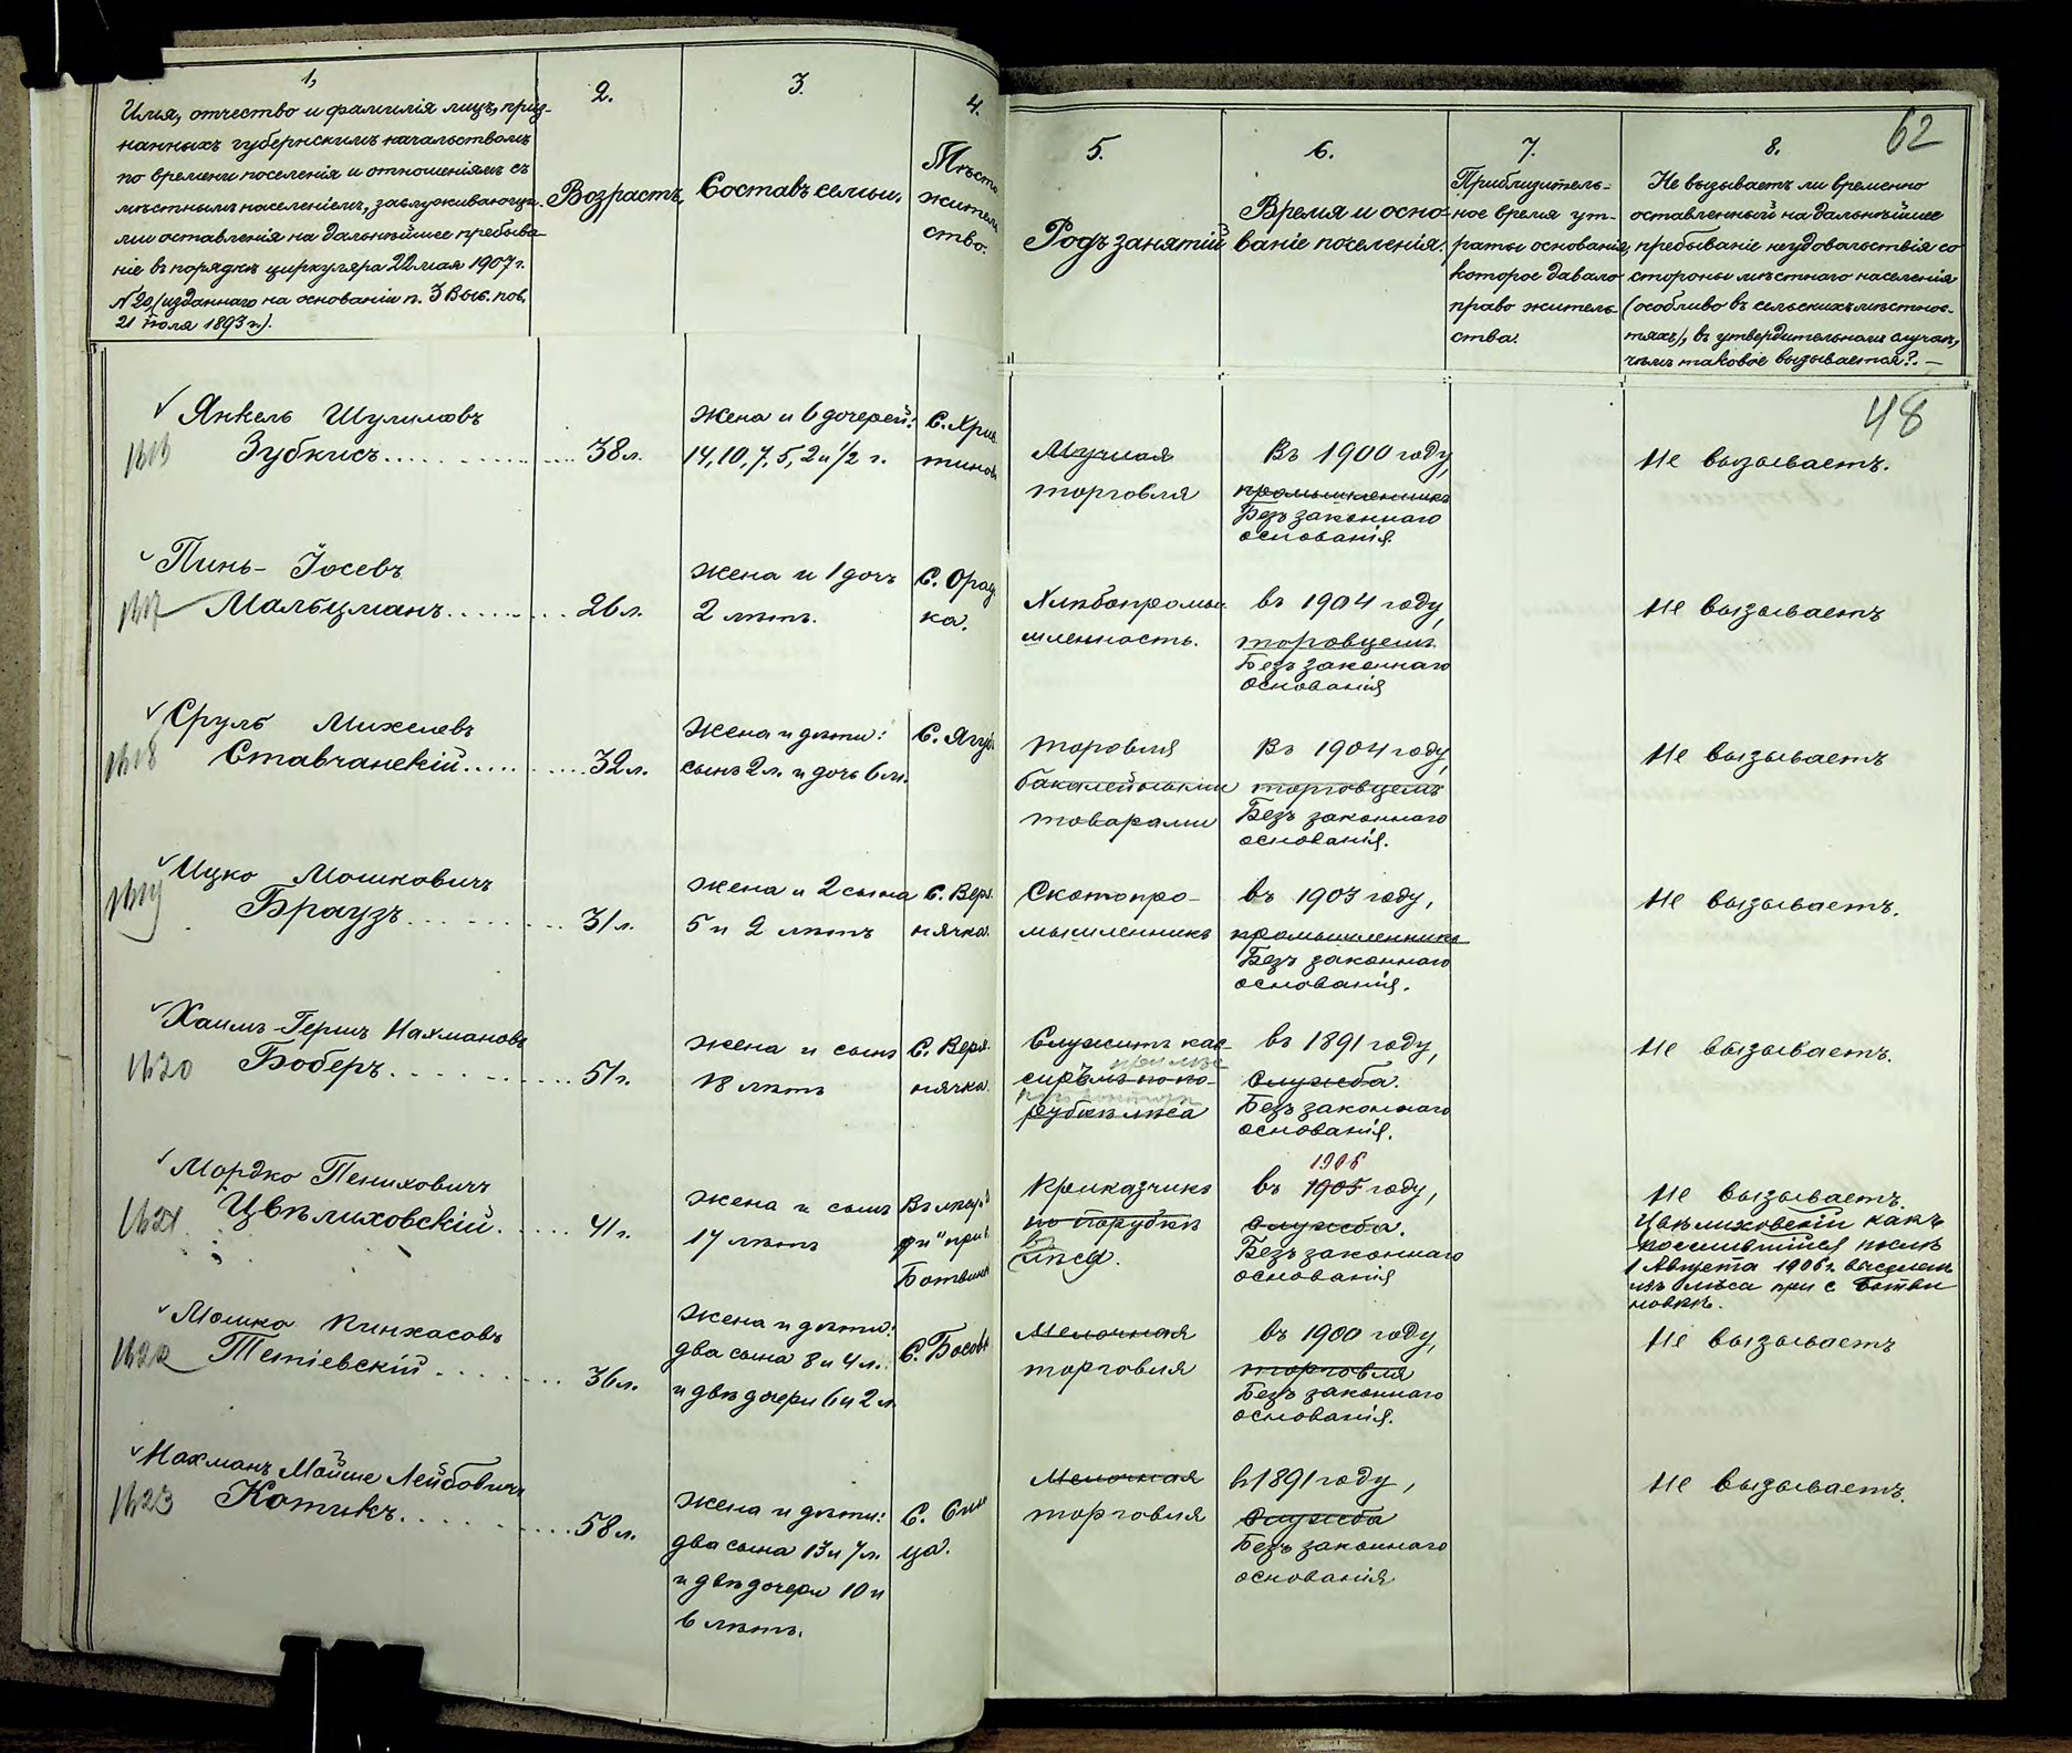 62
1,
Имя, отчество и фамилія лицъ, приз-
нанныхъ губернскимъ начальствомъ
по времени поселенія и отношеніямъ съ
мѣстнымъ населеніемъ, заслуживающи-
ми оставленія на дальнѣйшее пребыва-
ніе въ порядкѣ циркуляра 22 мая 1907 г.
№ 20 (изданнаго на основаніи п. 3 Выс. пов.
21 іюля 1893 г.).
2.
Возрастъ.
3.
Составъ семьи.
4.
Мѣсто
житель
ство.
5.
Родъ занятій
6.
Время и осно-
ваніе поселенія.
7.
Приблизитель-
ное время ут-
раты основанія,
которое давало
право житель-
ства.
8.
Не вызываетъ ли временно
оставленный на дальнѣйшее
пребываніе неудовольствія со
стороны мѣстнаго населенія
(особливо въ сельскихъ мѣстнос-
тяхъ), въ утвердительномъ случаѣ,
чѣмъ таковое вызывается? —
48
Янкель Шулимовъ
1616 Зубкисъ
38 л.
Жена и 6 дочерей:
14, 10, 7, 5, 2 и 1/2 г.
С. Хрис
тинов
Мучная
торговля
Въ 1900 году,
промышленникъ
Безъ законнаго
основанія.
Не вызываетъ.
Пинь-Іосевъ
1617 Мальцманъ
26 л.
Жена и 1 дочь
2 лѣтъ.
С. Орад
ка.
Хлѣбопромы
шленность.
въ 1904 году,
торговцемъ
Безъ законнаго
основанія
Не вызываетъ
Сруль Михелевъ
1618 Ставчанскій
32 л.
Жена и дѣти:
сынъ 2 л. и дочь 6 л.
С. Ягуб
торговля
бакалейными
товарами
Въ 1904 году,
торговцемъ
Безъ законнаго
основанія.
Не вызываетъ
Ицко Мошковичъ
1619 Браузъ
31 л.
Жена и 2 сына
5 и 2 лѣтъ
С. Верх
нячка.
Скотопро-
мышленникъ
въ 1903 году,
промышленникъ
Безъ законнаго
основанія.
Не вызываетъ.
Хаимъ-Гершъ Нахмановъ
1620 Боберъ
51 г.
Жена и сынъ
18 лѣтъ
С. Верх
нячка.
Служитъ кас-
сиромъ по по-
рубкѣ лѣса
въ 1891 году,
служба.
Безъ законнаго
основанія.
Не вызываетъ.
Мордко
1621 Цвѣлиховскій
41 г.
Жена и сынъ
17 лѣтъ
при с.
Ботвин
Приказчикъ
по порубкѣ
лѣса.
1906
въ 1905 году,
служба.
Безъ законнаго
основанія
Не вызываетъ.
Цвѣлиховскій какъ
поселившійся послѣ
1 Августа 1906 г. выселенъ
изъ лѣса при с Ботви
новкѣ.
Мошко Пинхасовъ
1622 Тетіевскій
36 л.
Жена и дѣти:
два сына 8 и 4 л.
и двѣ дочери 6 и 2 л.
С. Босов
Мелочная
торговля
въ 1900 году,
торговля
Безъ законнаго
основанія.
Не вызываетъ
Нахманъ Мойше Лейбовичъ
1623 Котикъ
58 л.
Жена и дѣти:
два сына 13 и 7 л.
и двѣ дочери 10 и
6 лѣтъ.
С.
ца.
Мелочная
торговля
въ 1891 году,
служба
Безъ законнаго
основанія
Не вызываетъ.